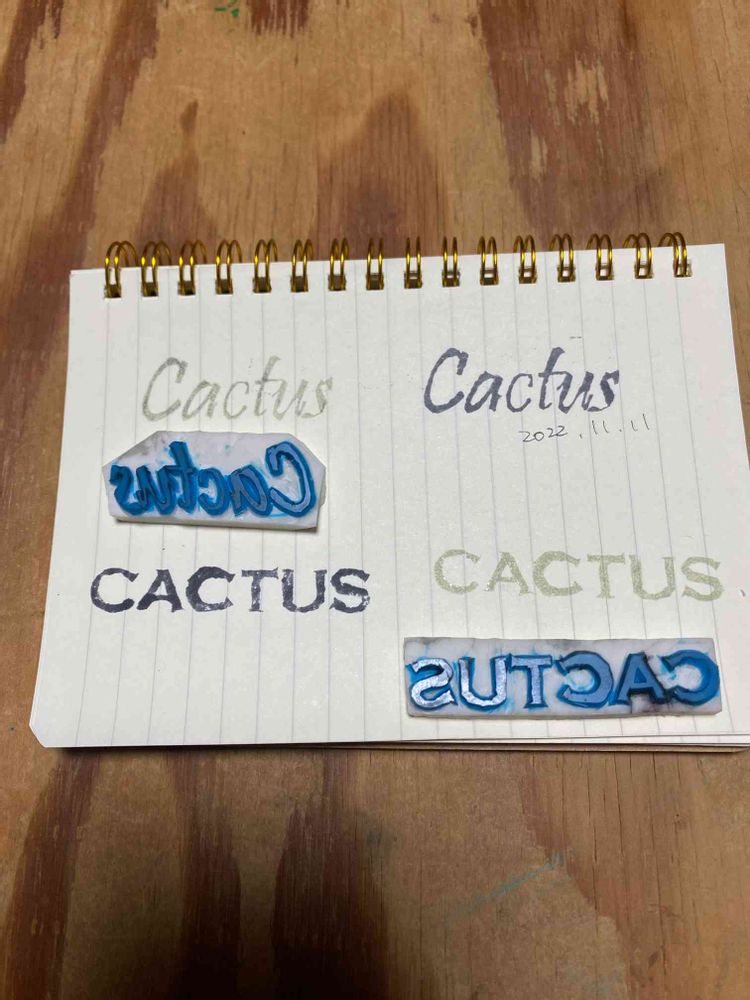 Cactus
Cactus
2022.11.11
Cactus
CACTUS
CACTUS
CACTUS